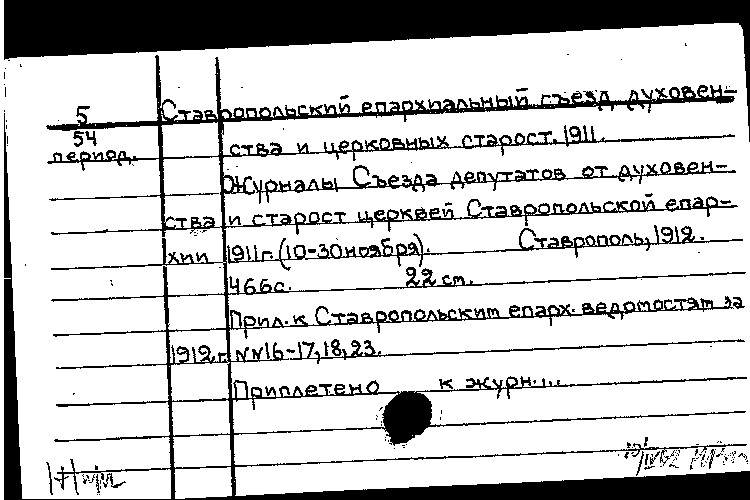 5
54
период.
Ставропольский епархиальный съезд духовен-
ства и церковных старост. 1911.
Журналы Съезда депутатов от духовен-
ства и старост церквей Ставропольской епар-
хии 1911г. (10-30 ноября). Ставрополь, 1912.
466с. 22 см.
Прил. к Ставропольским епарх. ведомостям за
1912г. NN16-17, 18, 23.
Приплетено к журн...